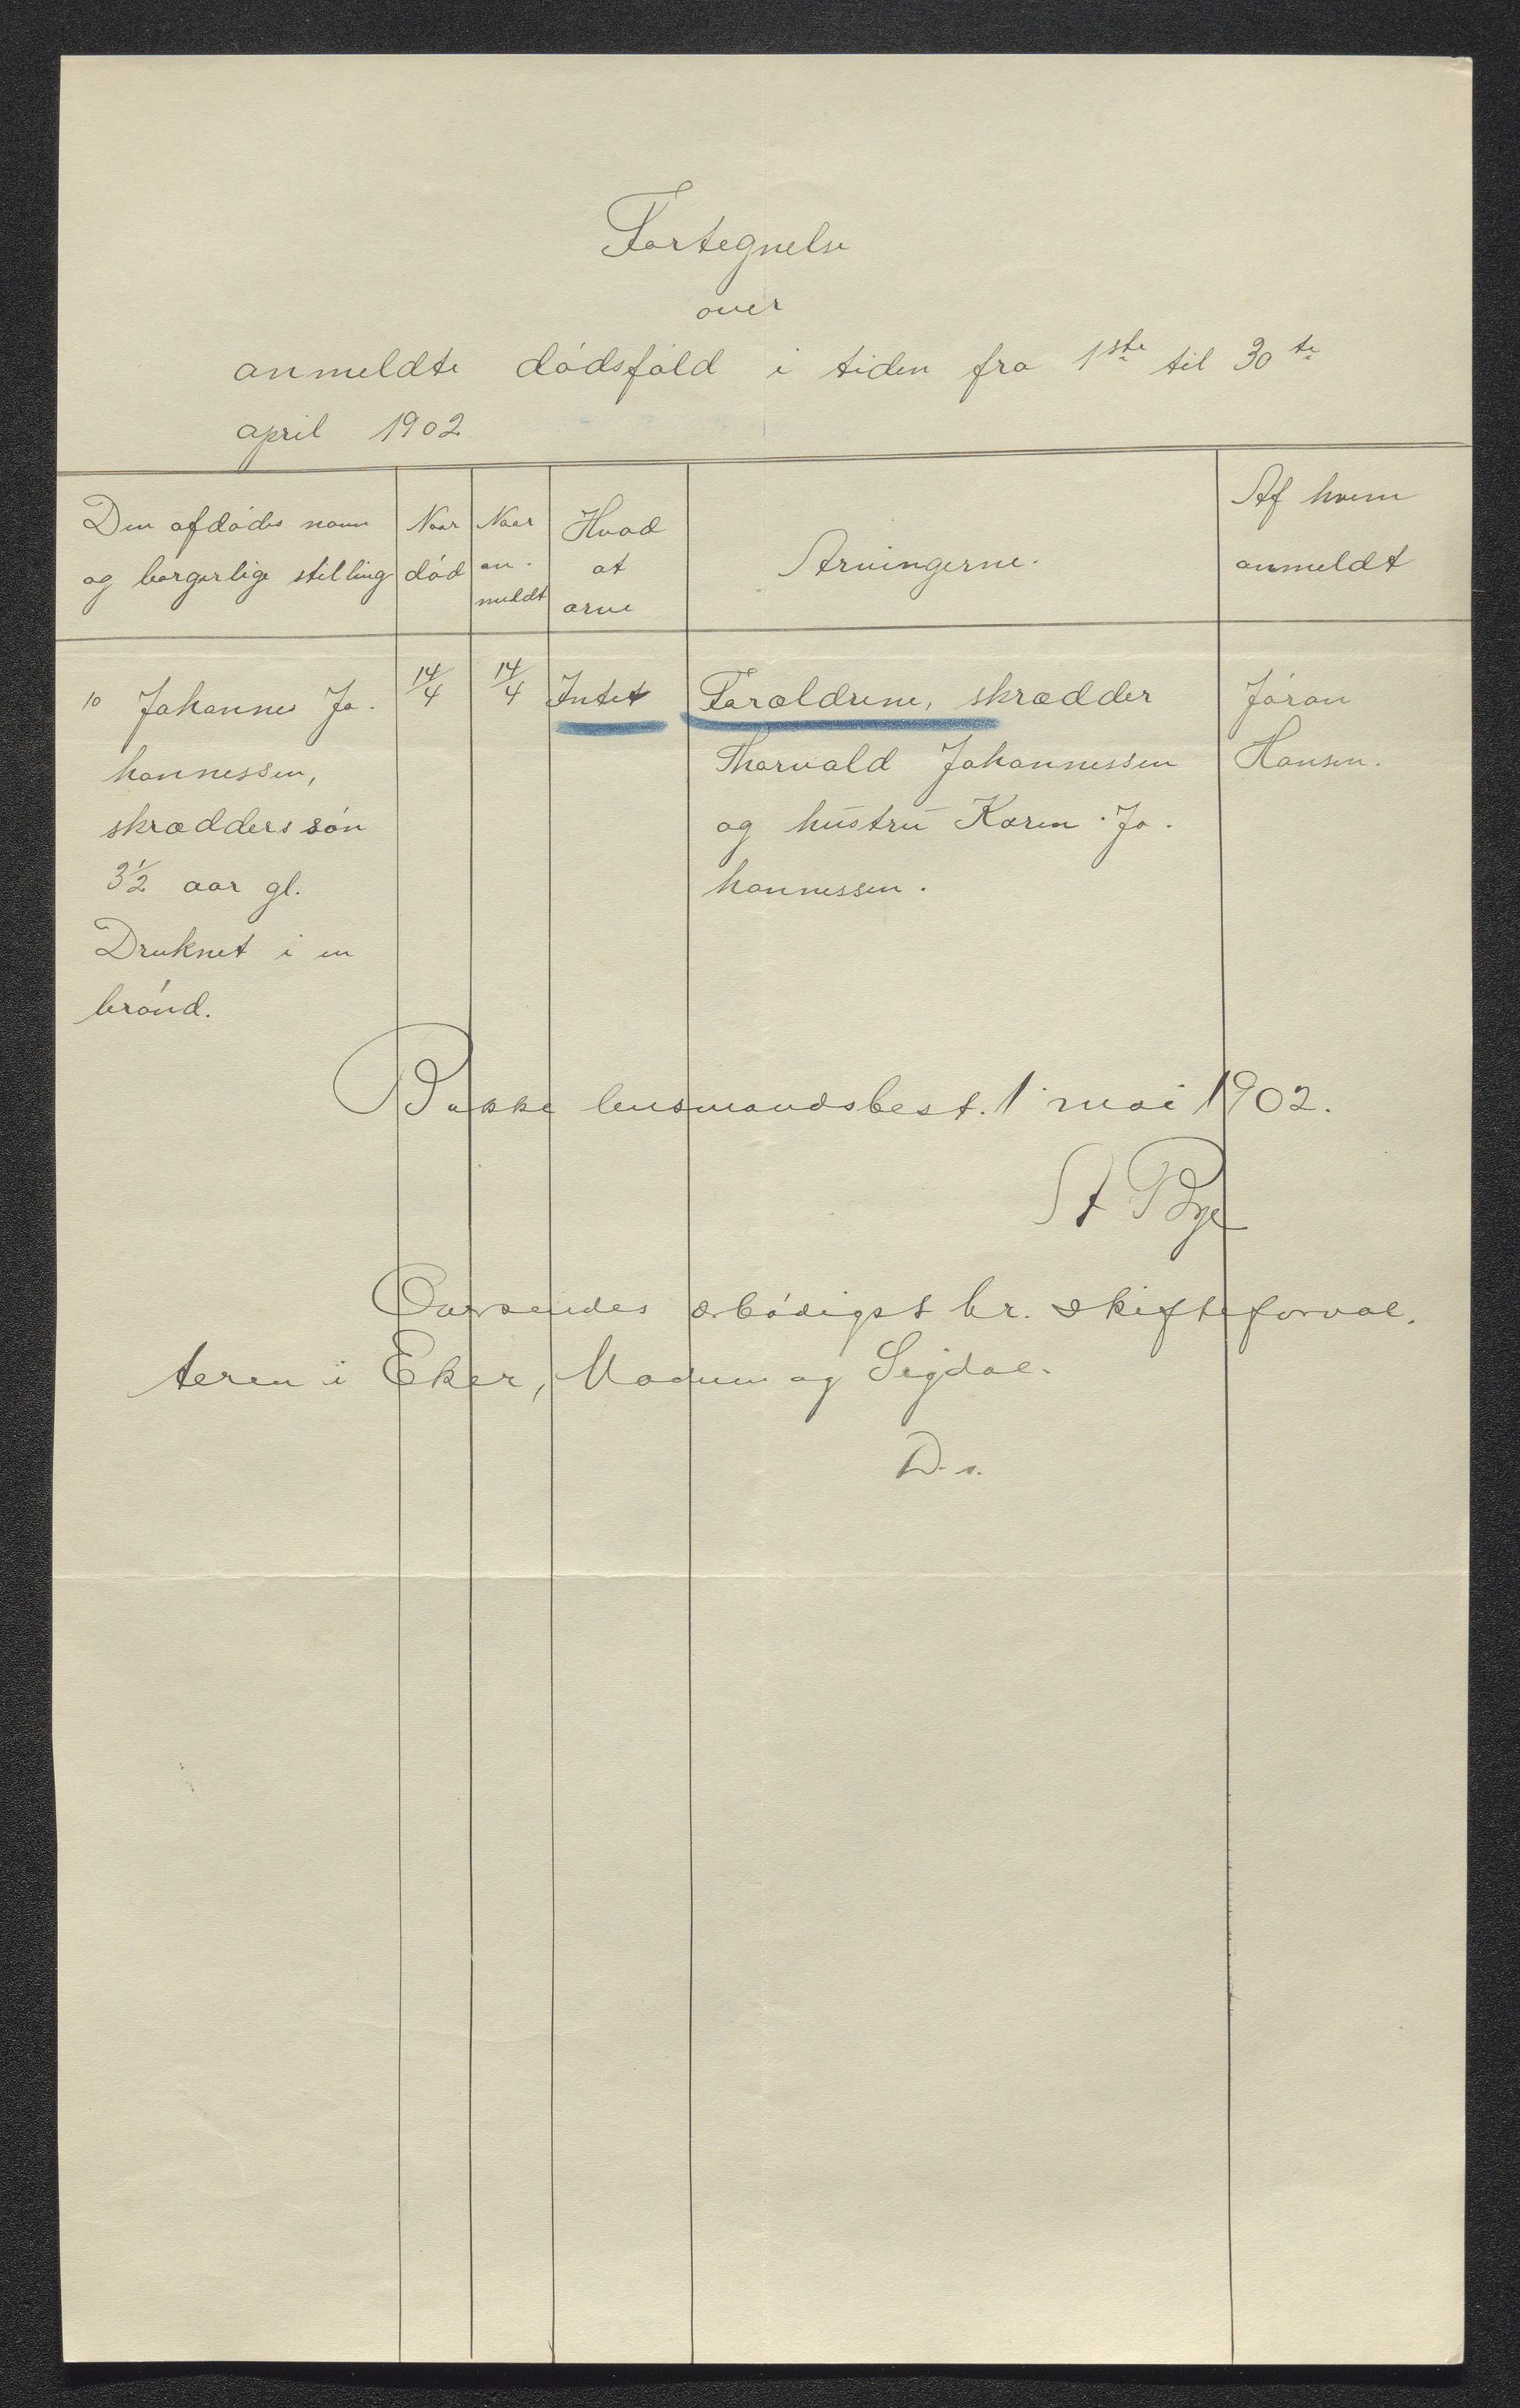 Fortegnelse
over
anmeldte dødsfald i tiden fra 1ste til 30te
april 1902
Den afdødes navn
og borgerlige stilling
Naar
død
Naar
an-
meldt
Hvad
at
arve
Arvingerne.
Af hvem
anmeldt
10 Johannes Jo-
hannessen,
skrædders søn
3½ aar gl.
Druknet i en
brønd.
14/4
14/4
Intet
Forældrene, skrædder
Thorvald Johannessen
og hustru Karen Jo-
hannessen.
Jøran
Hansen.
Bakke lensmandsbest. 1 mai 1902.
A Bye
Oversendes ærbødigst hr. skifteforval-
teren i Eker, Modum og Sigdal.
D. s.